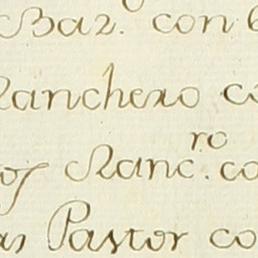 Baz. con
Ranchero co
Ranc.ro co
Pastor co